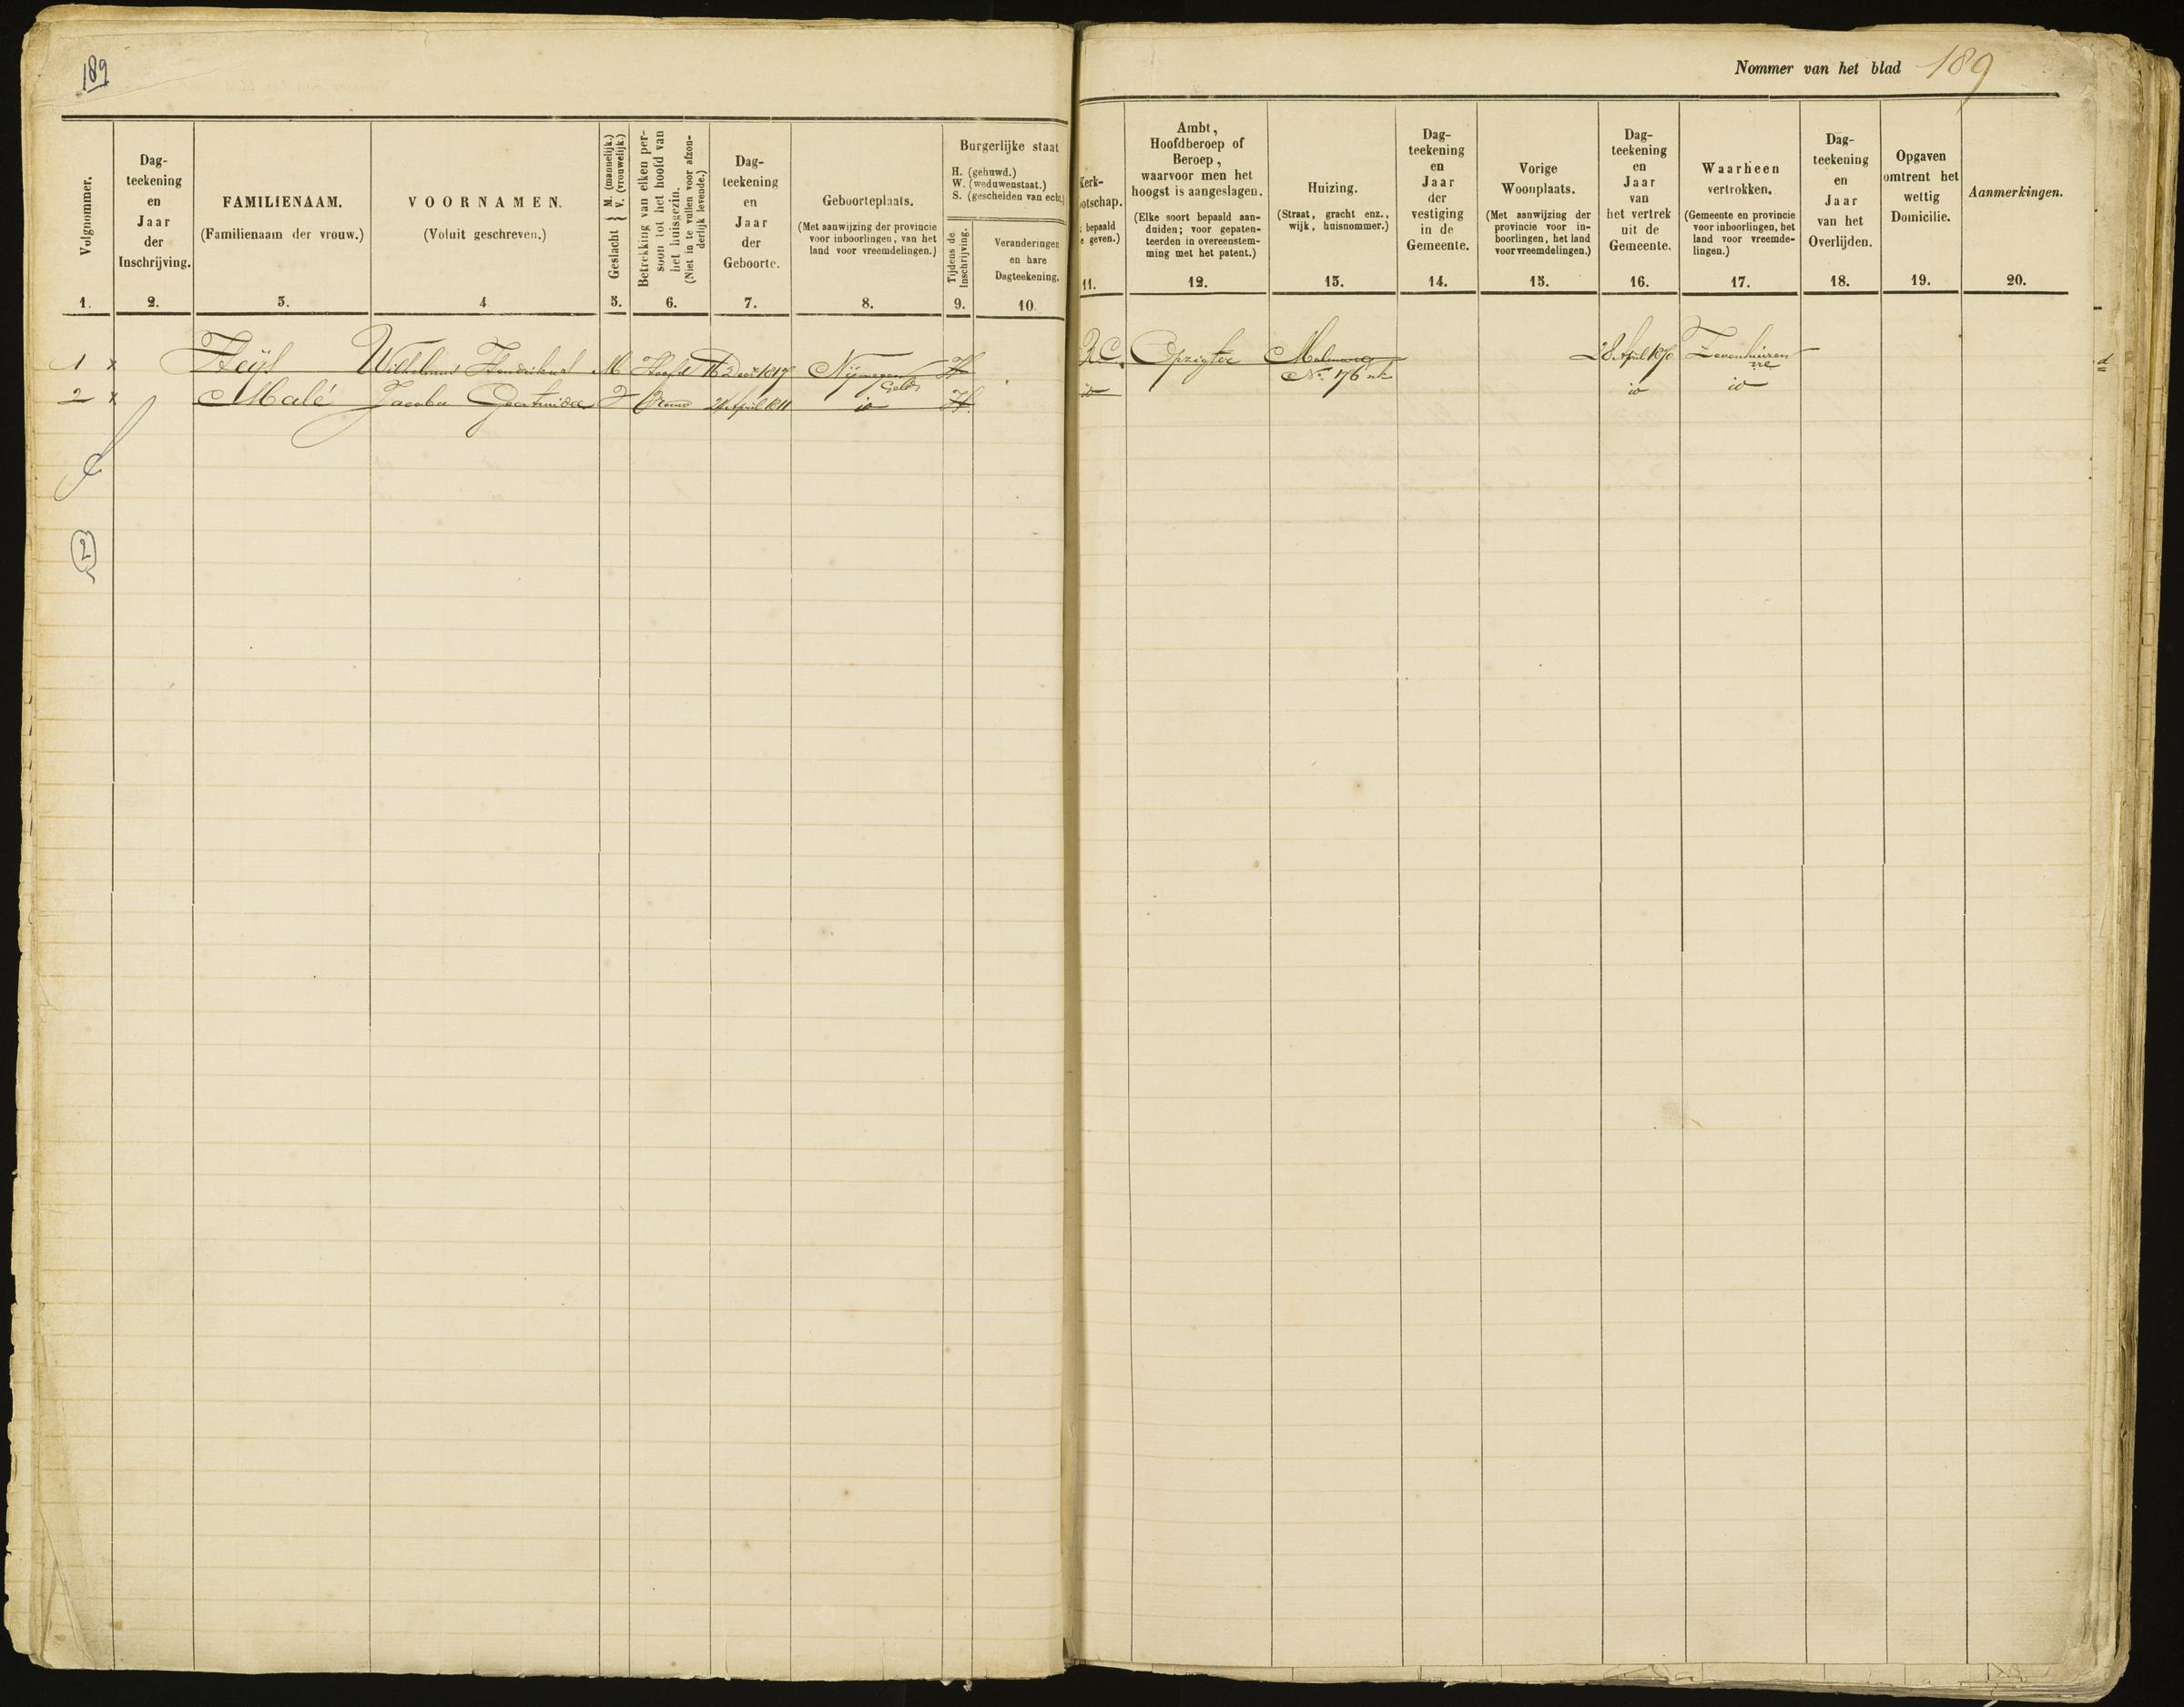 189
Nommer van het blad 189
Volgnommer.
1.
Dag-
teekening
en
Jaar
der
Inschrijving.
2.
FAMILIENAAM.
(Familienaam der vrouw.)
3.
VOORNAMEN.
(Voluit geschreven.)
4
Geslacht } M. (mannelijk.) V. (vrouwelijk.)
5.
Betrekking van elken per-
soon tot het hoofd van
het huisgezin.
(Niet in te vullen voor afzon-
derlijk levende.)
6.
Dag-
teekening
en
Jaar
der
Geboorte.
7.
Geboorteplaats.
(Met aanwijzing der provincie
voor inboorlingen, van het
land voor vreemdelingen.)
8.
Burgerlijke staat
H. (gehuwd.)
W. (weduwenstaat.)
S. (gescheiden van echt.)
Tijdens de
Inschrijving.
9.
Veranderingen
en hare
Dagteekening.
10
Kerk-
ootschap.
bepaald
e geven.)
11.
Ambt,
Hoofdberoep of
Beroep,
waarvoor men het
hoogst is aangeslagen.
(Elke soort bepaald aan-
duiden; voor gepaten-
teerden in overeenstem-
ming met het patent.)
12.
Huizing.
(Straat, gracht enz.,
wijk, huisnommer.)
13.
Dag-
teekening
en
Jaar
der
vestiging
in de
Gemeente.
14.
Vorige
Woonplaats.
(Met aanwijzing der
provincie voor in-
boorlingen, het land
voor vreemdelingen.)
15.
Dag-
teekening
en
Jaar
van
het vertrek
uit de
Gemeente.
16.
Waarheen
vertrokken.
(Gemeente en provincie
voor inboorlingen, het
land voor vreemde-
lingen.)
17.
Dag-
teekening
en
Jaar
van het
Overlijden.
18.
Opgaven
omtrent het
wettig
Domicilie.
19.
Aanmerkingen.
20.
1 x Heijs Wilhelmus Hendrikus M Hoofd 16 Decr 1817 Nijmegen Geld. H R.C. Opzigter No. 176 28 April 1870 Zevenhuizen
2 x Malé Jacoba Geertruida V Vrouw 21 April 1811 id H id id id
2